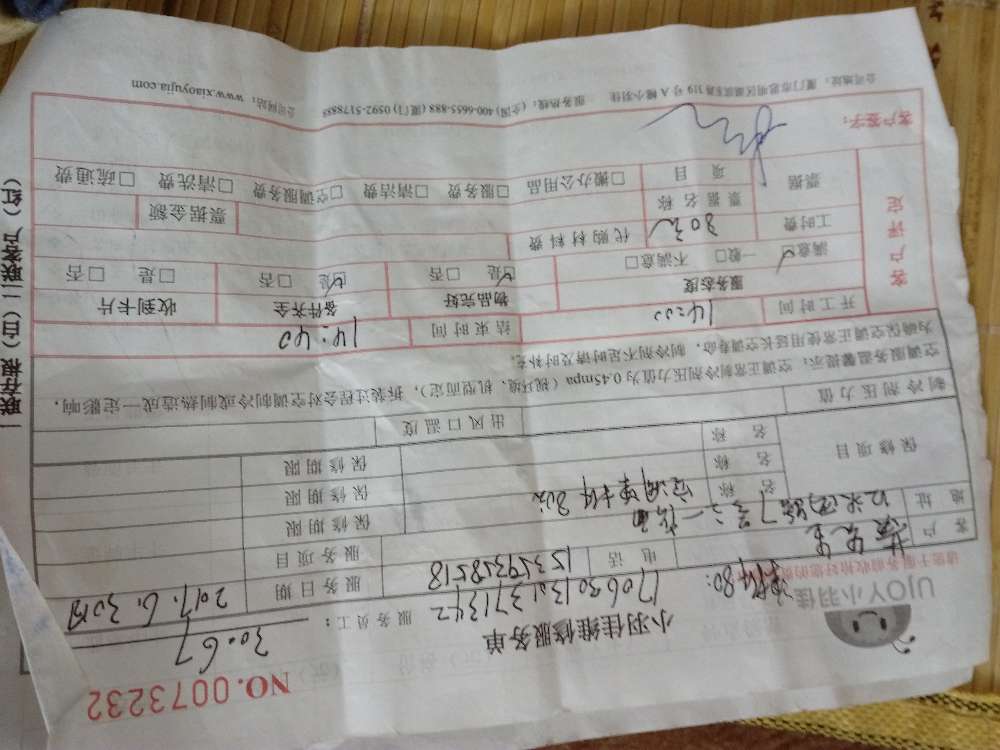 NO.0073232
UJOY小羽佳
小羽佳维修服务单
服务员工：30.67
170630131371342
客户
电话 15359358518
服务日期 2017.6.30
地址
服务项目
保修项目
名称 保修期限
名称 保修期限
名称 保修期限
制冷剂压力值
出风口温度
空调服务温馨提示：空调正常制冷剂压力值为0.45mpa（视环境、机型而定），拆装过程会对空调制冷或制热造成一定影响，
为确保空调正常使用延长空调寿命，制冷剂不足时请及时补充。
开工时间 14:00
结束时间 14:40
客户评定
服务态度
物品完好
备件齐全
收到卡片
满意☑ 一般□ 不满意□
☑是 □否
☑是 □否
□是 □否
工时费 30元
代购材料费
票据
票据名称
票据金额
项目
□搬办公用品 □服务费 □清洁费 □空调服务费 □清洗费 □疏通费
客户签字：
公司地址：厦门市思明区湖滨东路319号A幢小羽佳 服务热线：(全国) 400-6655-888 (厦门) 0592-5178888 公司网站：www.xiaoyujia.com
一联存根（白）二联客户（红）